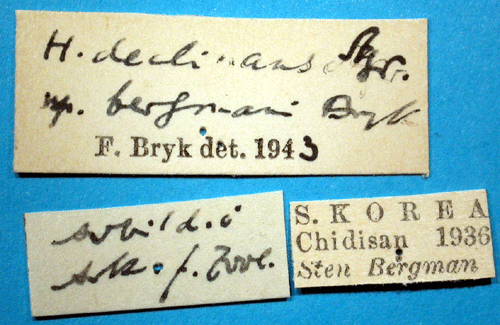 H. declinans Stgr.
ssp. bergmani Bryk
F. Bryk det. 1943
avbild. i
Ark. f. Zool.
S. KOREA
Chidisan 1936
Sten Bergman